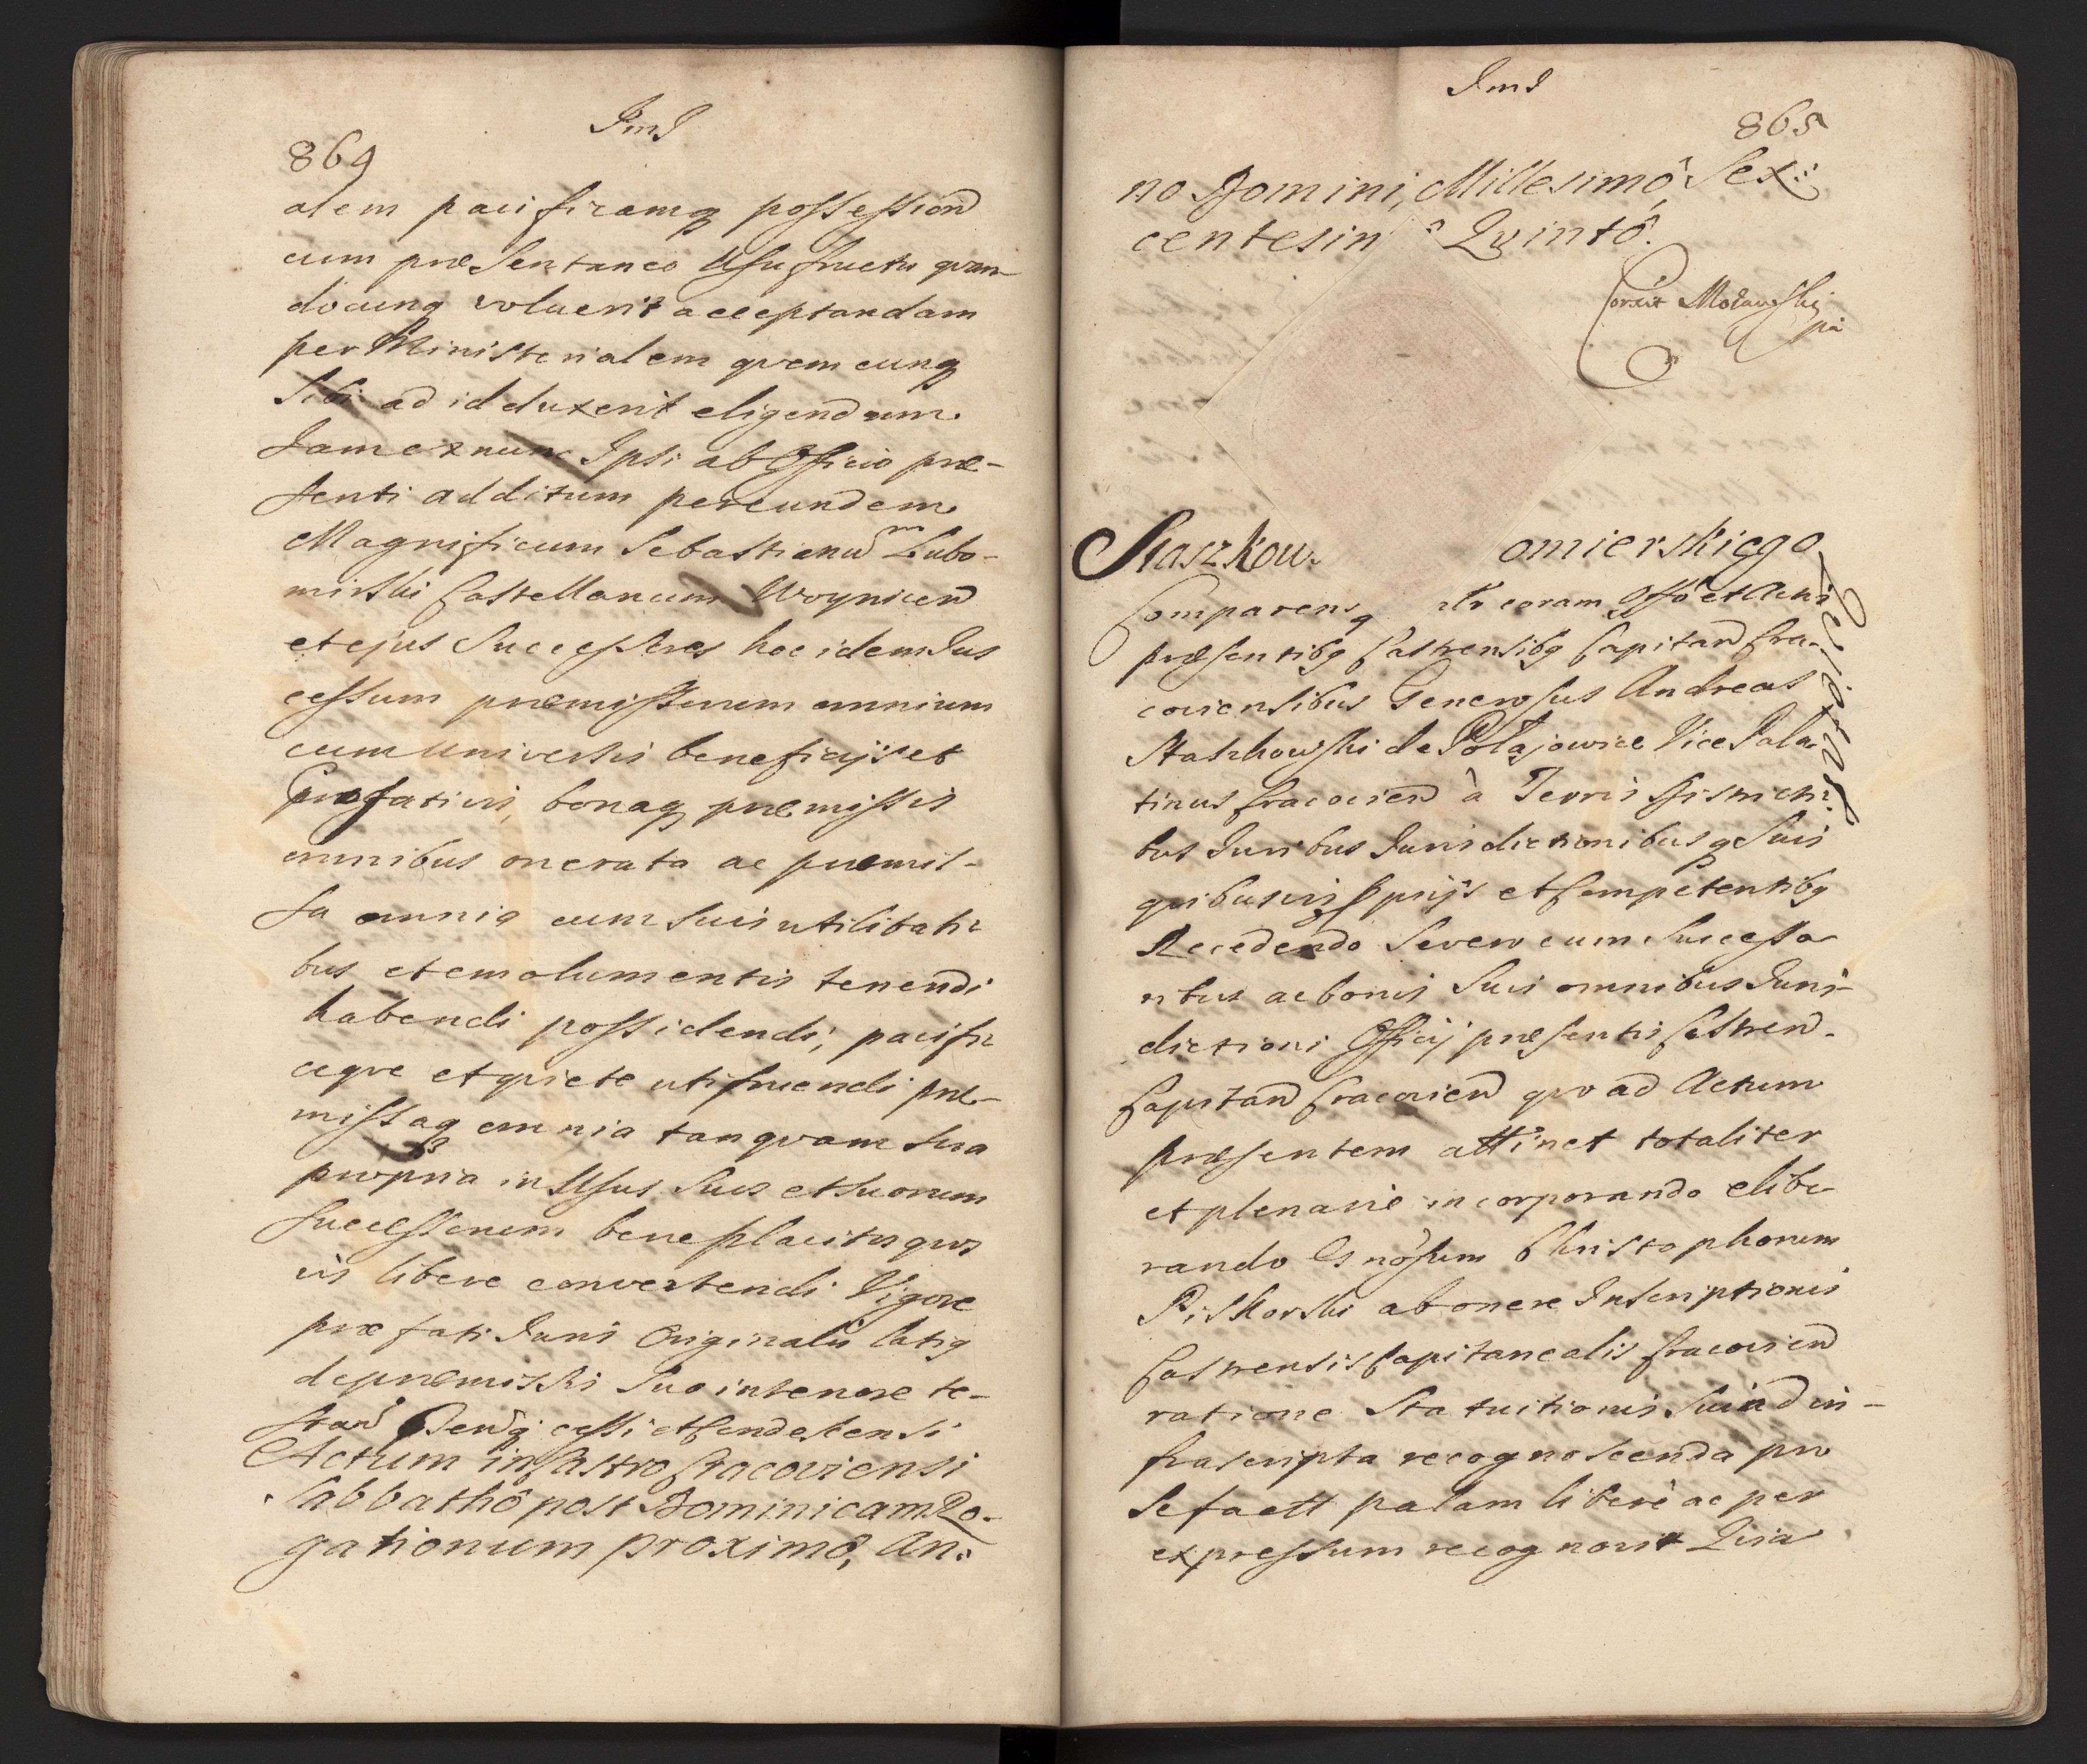 864
alem pacificamq possession
cum præsentaneo Usufructu qvan-
docunq voluerit acceptandam
per Ministerialem qvemcunq
Sibi ad id duxerit eligendum.
Jam ex nunc Ipsi ab Officio præ-
senti additum per eundem
Magnificum Sebastianum Lubo-
mirski Castellanum Woynicen
et ejus Successores hoc idem Jus
cessum præmissorum omnium
cum Universis beneficijs et
omnibus onerata ac præmis-
sa omnia cum suis utilitati-
bus et emolumentis tenendi
habendi possidendi, pacifi-
ceqve et qviete utifruendi præ-
missaq omnia tanqvam sua
propria in Usus Suos et suorum
Successorum beneplacitos qvos
vis libere convertendi Vigore
præfati Juris Originalis latiq
de præmissis Suo in tenore te-
stan
Actum in Castro Cracoviensi
Sabbathô post Dominicam Ro-
gationum proximô, An:
865
no Domini, Millesimô, Sex:
centesim Qvintô.
Staszkow omierskiego
Comparens coram Offô et Actis
præsentibq Castrensibq Capitan Cra-
coviensibus Generosus Andreas
Staszkowski de Polajowice Vice Pala-
tinus Cracovien à Terris Districti-
bus Juribus Jurisdictionibusq Suis
qvibusvis pprijs et Competentibq
Recedendo Seqve cum Successo-
ribus ac bonis Suis omnibus Juris-
dictioni Officij præsentis Castren.
Capitan Cracovien qvo ad Actum
præsentem attinet totaliter
et plenarie incorporando elibe-
rando Gnôsum Christophorum
Piskorski ab onere Inscriptionis
Castrensis Capitanealis Cracovien
ratione Statuitionis Suiad in-
frascripta recognoscenda pro
se fact palam liberè ac per
expressum recognovit Qvia